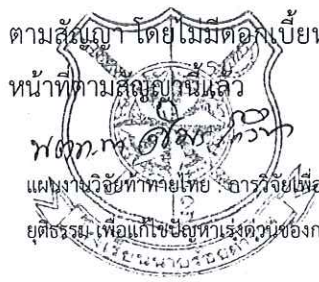 ตามสัญญา โดยไม่มีดอกเบี้ย
หน้าที่ตามสัญญานี้แล้ว
แผนงานวิจัยท้าทายไทย : การวิจัยเพื่อ
ยุติธรรม เพื่อแก้ไขปัญหาเร่งด่วนของก
โรงเรียนนายร้อยตำรวจ